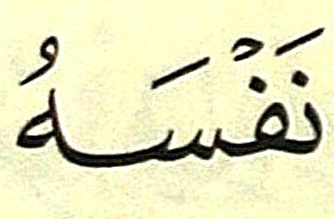 نَفْسَهُ